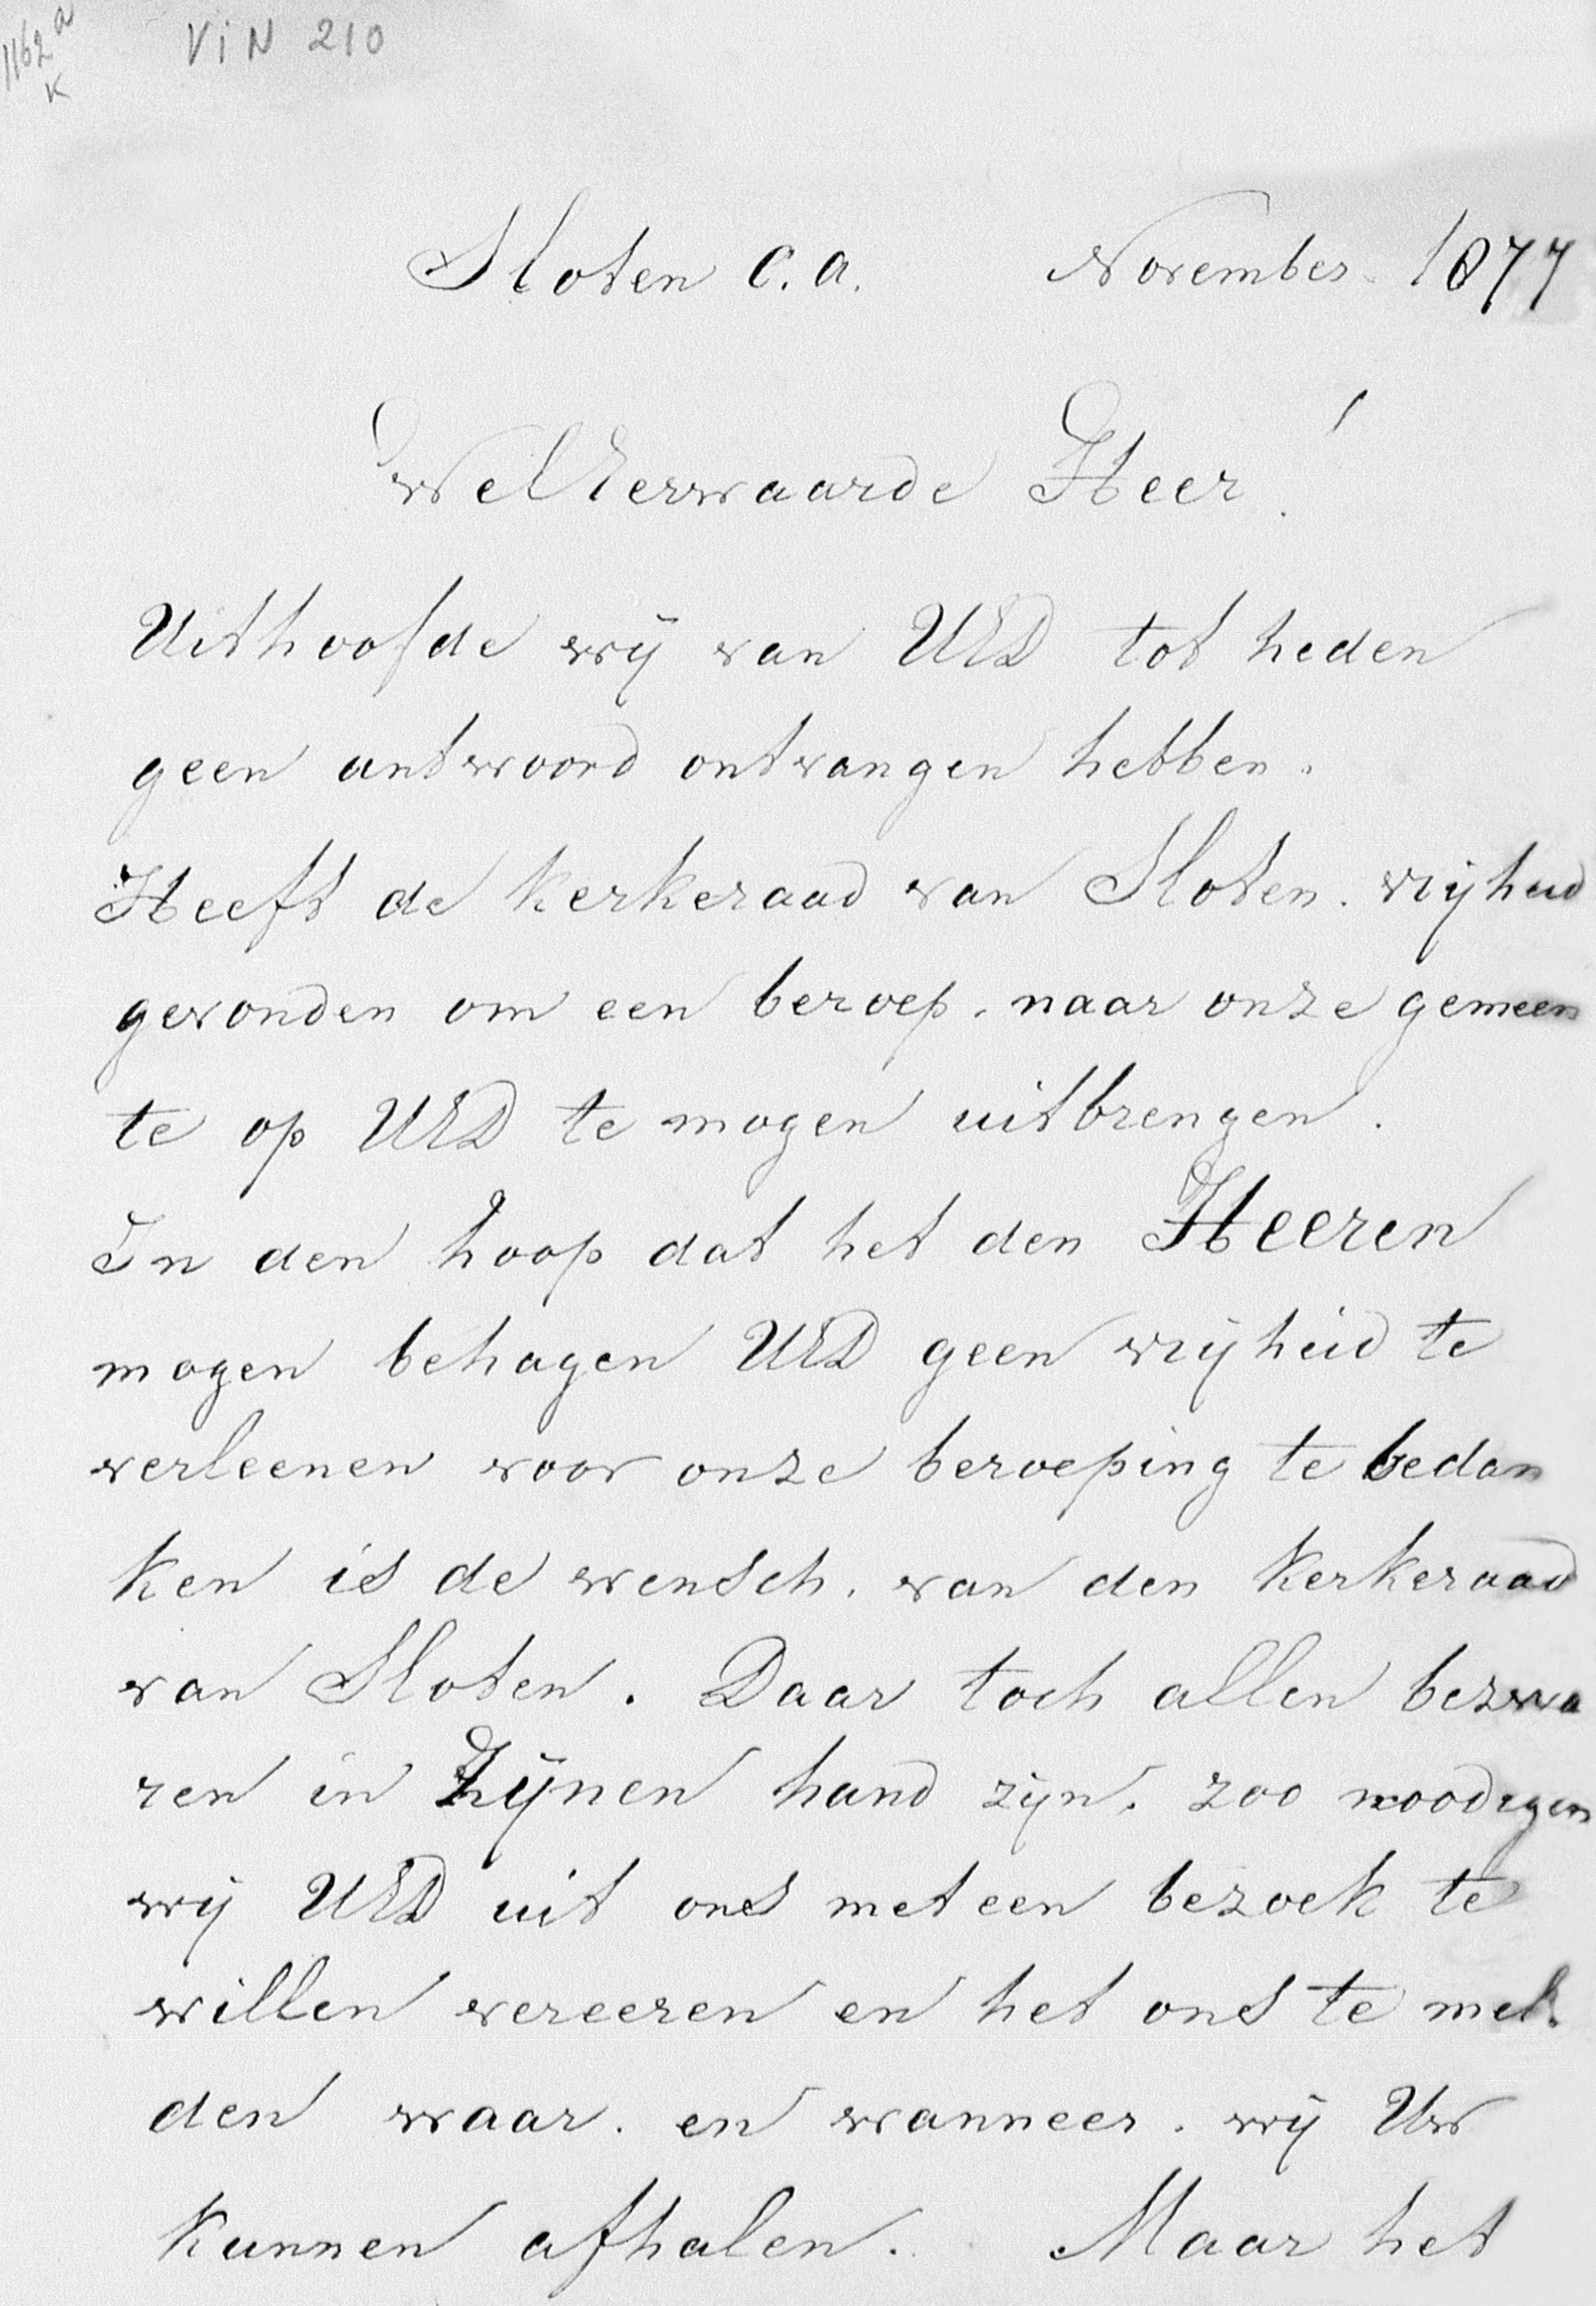 1162a
K
ViN 210
Sloten c.a. November 1877
WelEerwaarde Heer!
Uithoofde wij van UED tot heden
geen antwoord ontvangen hebben.
Heeft de kerkeraad van Sloten. vrijheid
gevonden om een beroep. naar onze gemeen
te op UED te mogen uitbrengen.
In den hoop dat het den Heeren
mogen behagen UED geen vrijheid te
verleenen voor onze beroeping te bedan
ken is de wensch. van den kerkeraad
van Sloten. Daar toch allen bezwa
ren in Zijnen hand zijn. zoo noodigen
wij UED uit ons met een bezoek te
willen vereeren en het ons te mel.
den waar. en wanneer. wij Uw
kunnen afhalen. Maar het